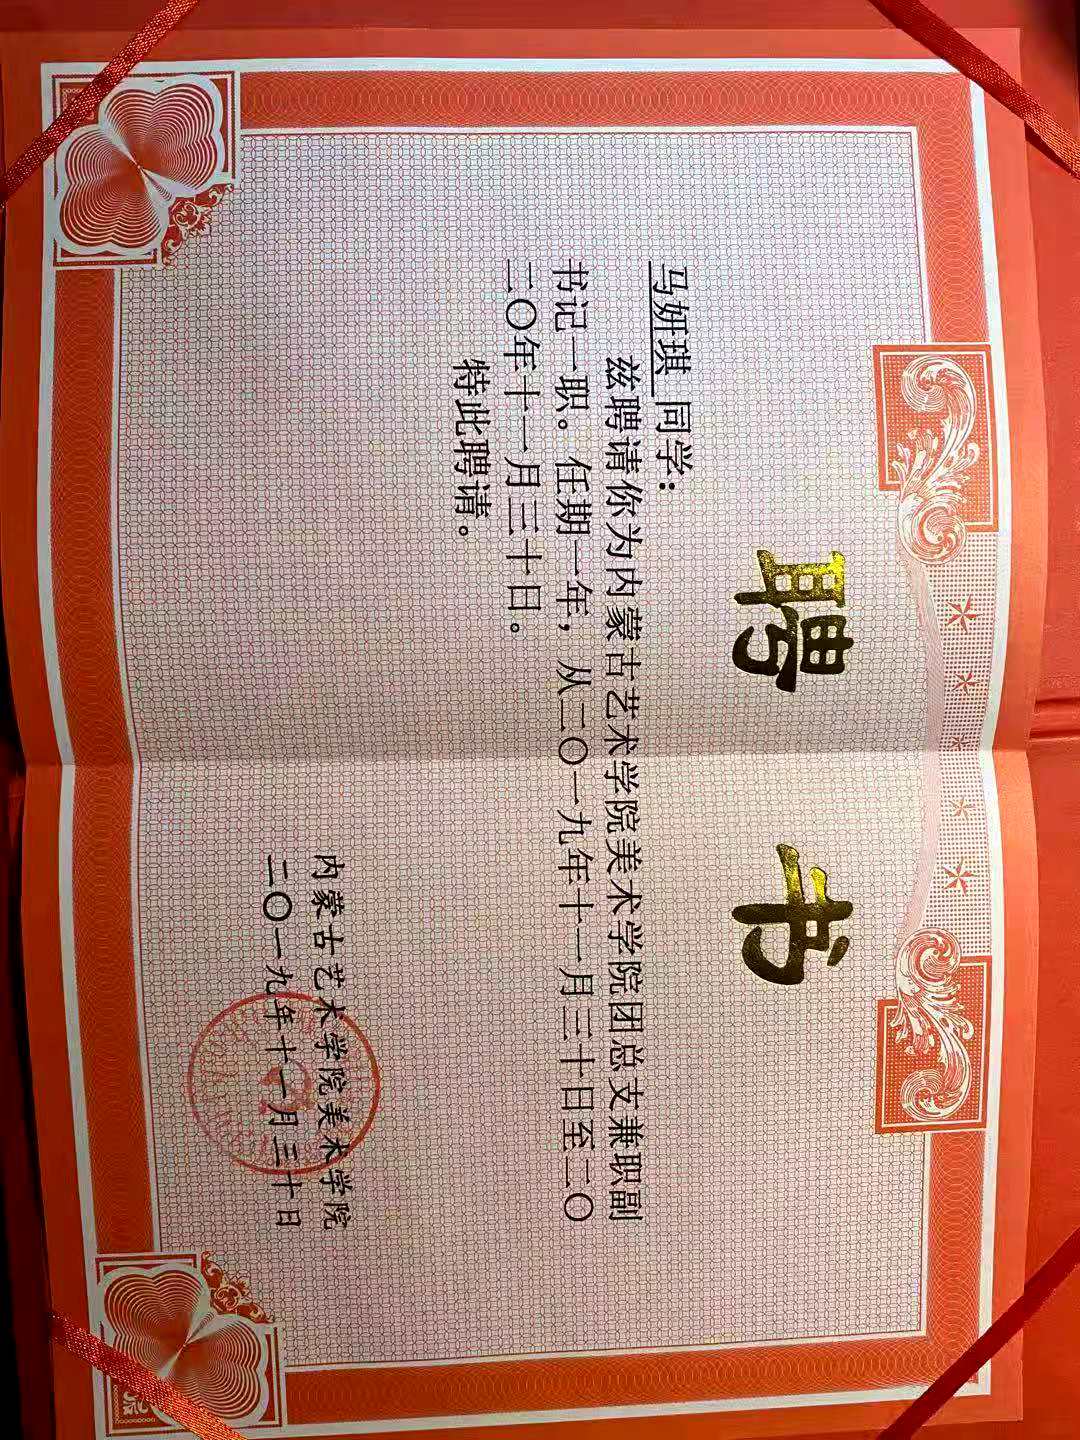 聘书
马妍琪 同学：
兹聘请你为内蒙古艺术学院美术学院团总支兼职副
书记一职。任期一年，从二〇一九年十一月三十日至二〇
二〇年十一月三十日。
特此聘请。
内蒙古艺术学院美术学院
二〇一九年十一月三十日